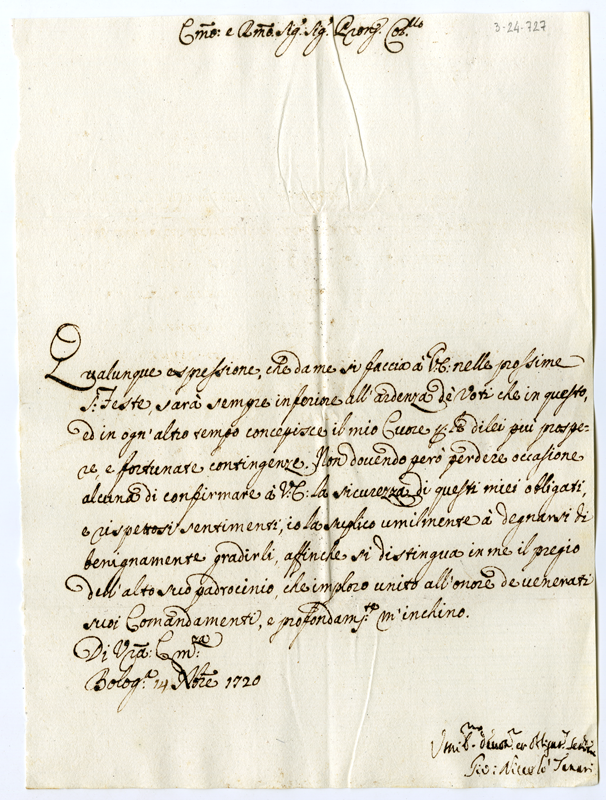 Em̃o: e Rm̃o. Sig.r Sig.r Pron. Col.mo
3-24-727
Qualunque espressione, che da me si faccia à V.E. nelle prossime
S.te Feste, sarà sempre inferiore all'ardenza de' Voti che in questo,
ed in ogn'altro tempo concepisce il mio Cuore p le di lei piu prospe-
re, e fortunate contingenze. Non douendo però perdere occasione
alcuna di confirmare à V.E: la sicurezza di questi miei obligati,
e rispettosi sentimenti, io la suplico umilmente à degnarsi di
benignamente gradirli, affinche si distingua in me il pregio
dell'alto suo padrocinio, che imploro unito all'onore de venerati
suoi Comandamenti, e profondam.te m'inchino.
Di Vr̃a: Em.za
Bolog.a 14 Nbr̃e 1720
Vmil.mo
Gio: Niccolò Tanari